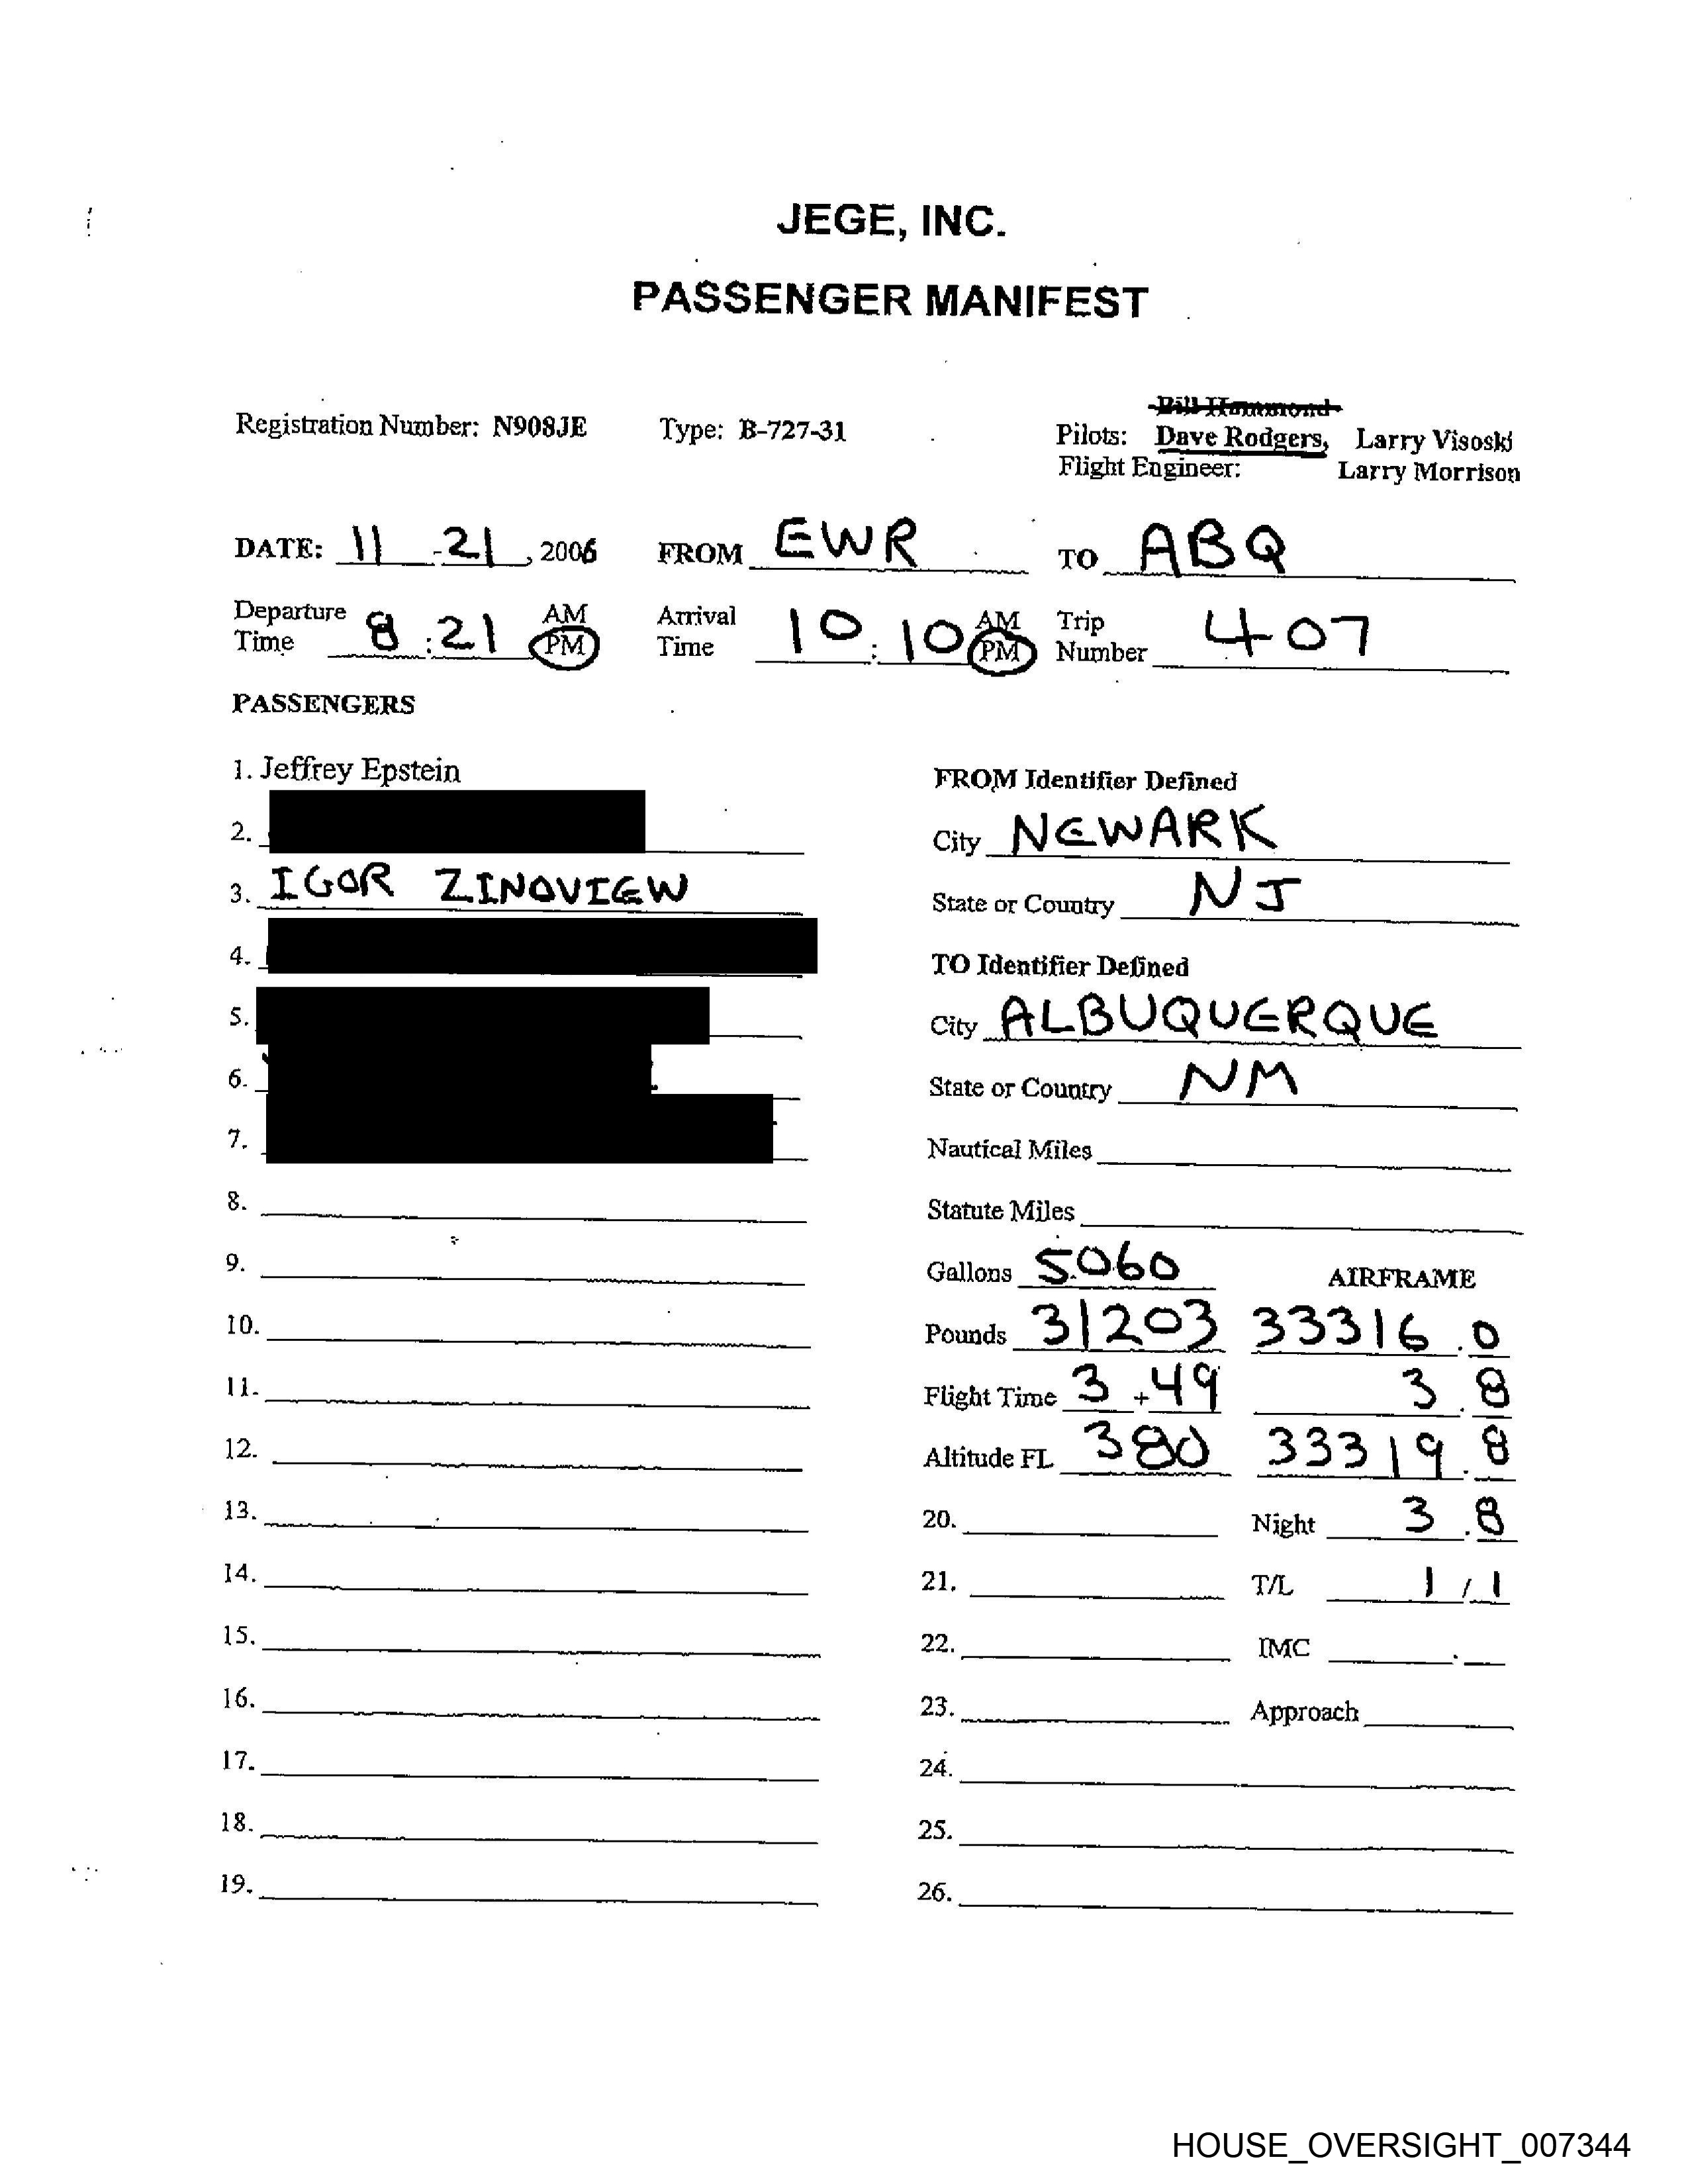 JEGE, INC.
PASSENGER MANIFEST
Bill Hammond
Registration Number: N908JE Type: B-727-31 Pilots: Dave Rodgers, Larry Visoski
Flight Engineer: Larry Morrison
DATE: 11 - 21, 2006 FROM EWR TO ABQ
Departure Time 8:21 AM PM Arrival Time 10:10 AM PM Trip Number 407
PASSENGERS
1. Jeffrey Epstein
FROM Identifier Defined
2.
City NEWARK
3. IGOR ZINOVIEW
State or Country NJ
4.
TO Identifier Defined
5.
City ALBUQUERQUE
6.
State or Country NM
7.
Nautical Miles
8.
Statute Miles
9.
Gallons 5060 AIRFRAME
10.
Pounds 31203 33316.0
11.
Flight Time 3+49 3.8
12.
Altitude FL 380 33319.8
13.
20. Night 3.8
14.
21. T/L 1/1
15.
22. IMC .
16.
23. Approach
17.
24.
18.
25.
19.
26.
HOUSE_OVERSIGHT_007344